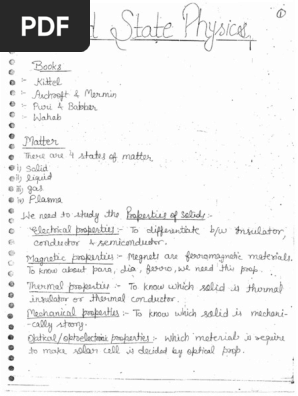 PDF
d State Physics
1
Books
:- Kittel
:- Aschroft & Mermin
:- Puri & Babber
:- Wahab
Matter
There are 4 states of matter
i) Solid
ii) liquid
iii) gas
iv) Plasma
We need to study the Properties of Solids:-
Electrical properties:- To differentiate b/w Insulator
conductor & semiconductor.
Magnetic properties:- Megnets are ferromagnetic materials.
To know about para, dia, ferro, we need this prop.
Thermal properties:- To know which solid is thermal
insulator or thermal conductor.
Mechanical properties:- To know which solid is mechani-
-cally strong.
Optical/optoelectronic properties:- which materials is require
to make solar cell is decided by optical prop.